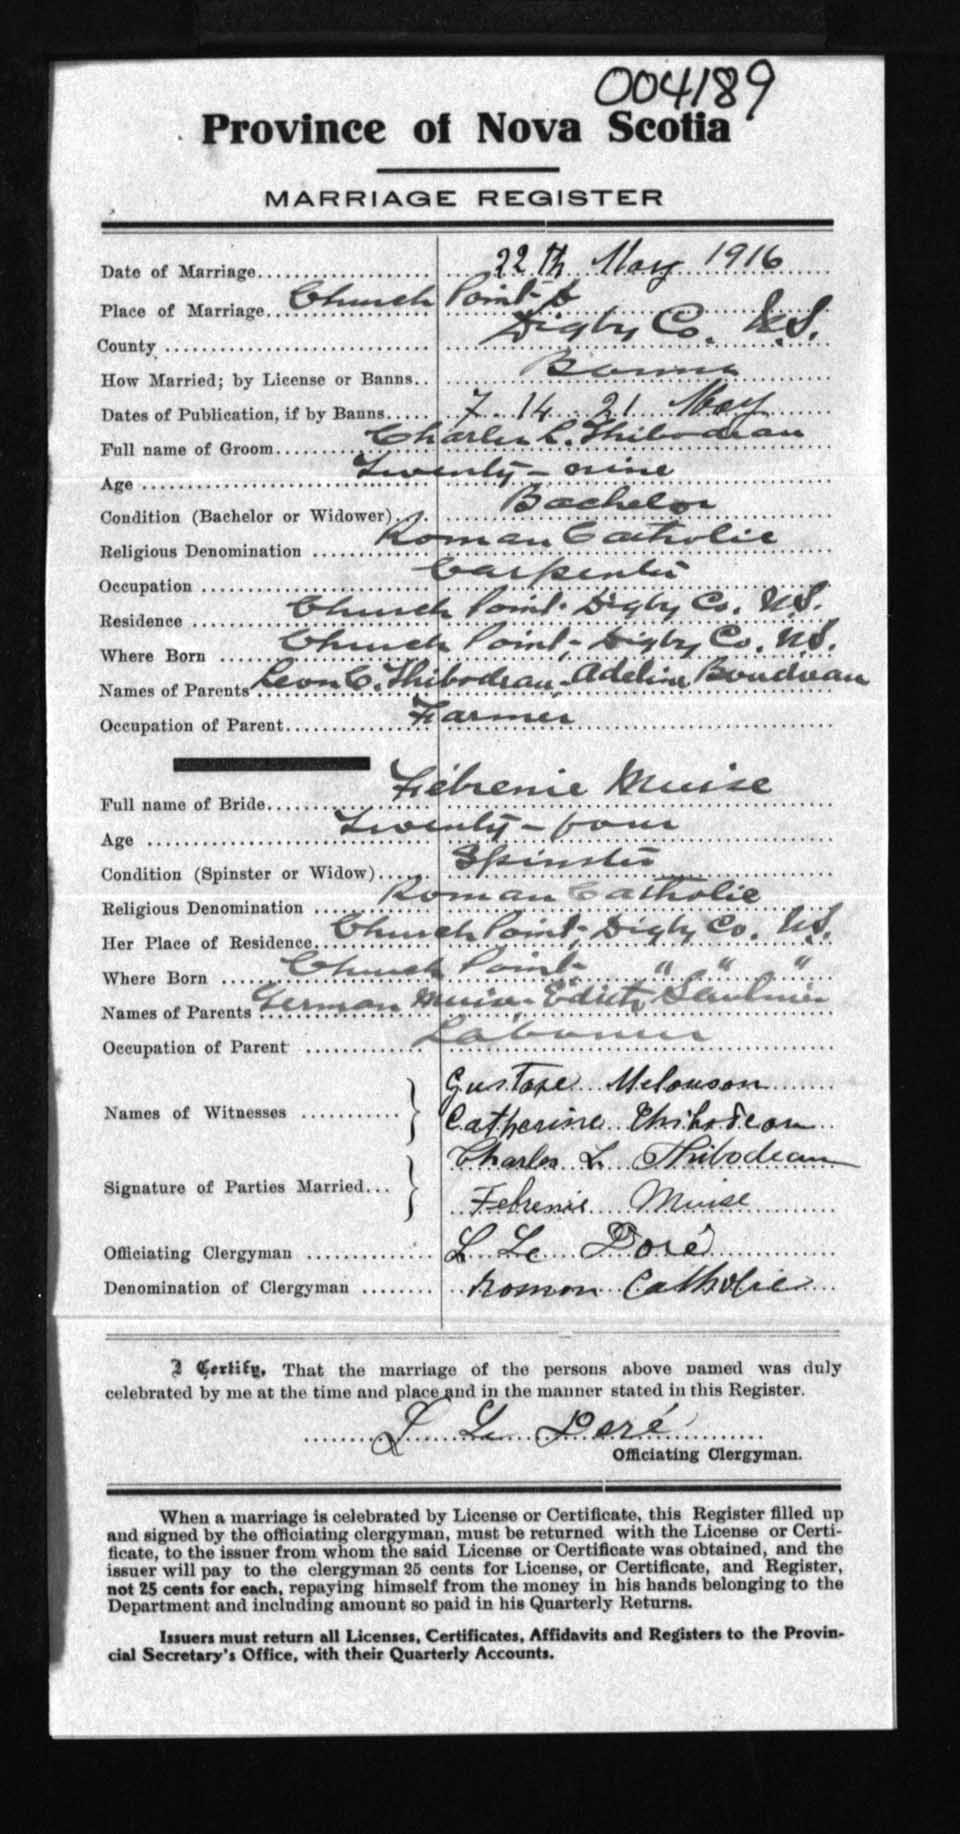 004189
Province of Nova Scotia
MARRIAGE REGISTER
Date of Marriage 22th May 1916
Place of Marriage Church Point
County Digby Co. N.S.
How Married; by License or Banns Banns
Dates of Publication, if by Banns 7 14 21 May
Full name of Groom Charles L. Thibodeau
Age Twenty-nine
Condition (Bachelor or Widower) Bachelor
Religious Denomination Roman Catholic
Occupation Carpenter
Residence Church Point Digby Co. N.S.
Where Born Church Point, Digby Co. N.S.
Names of Parents Leon C. Thibodeau - Adeline Boudreau
Occupation of Parent Farmer
Full name of Bride Fébrenie Muise
Age Twenty-four
Condition (Spinster or Widow) Spinster
Religious Denomination Roman Catholic
Her Place of Residence Church Point, Digby Co. N.S.
Where Born Church Point " " "
Names of Parents German Muise - Edith Saulnier
Occupation of Parent Labourer
Names of Witnesses Gustave Melanson
Catherine Thibodeau
Signature of Parties Married Charles L Thibodeau
Febrenie Muise
Officiating Clergyman L Le Doré
Denomination of Clergyman Roman Catholic
I Certify, That the marriage of the persons above named was duly
celebrated by me at the time and place and in the manner stated in this Register.
L Le Doré
Officiating Clergyman.
When a marriage is celebrated by License or Certificate, this Register filled up
and signed by the officiating clergyman, must be returned with the License or Certi-
ficate, to the issuer from whom the said License or Certificate was obtained, and the
issuer will pay to the clergyman 25 cents for License, or Certificate, and Register,
not 25 cents for each, repaying himself from the money in his hands belonging to the
Department and including amount so paid in his Quarterly Returns.
Issuers must return all Licenses, Certificates, Affidavits and Registers to the Provin-
cial Secretary's Office, with their Quarterly Accounts.